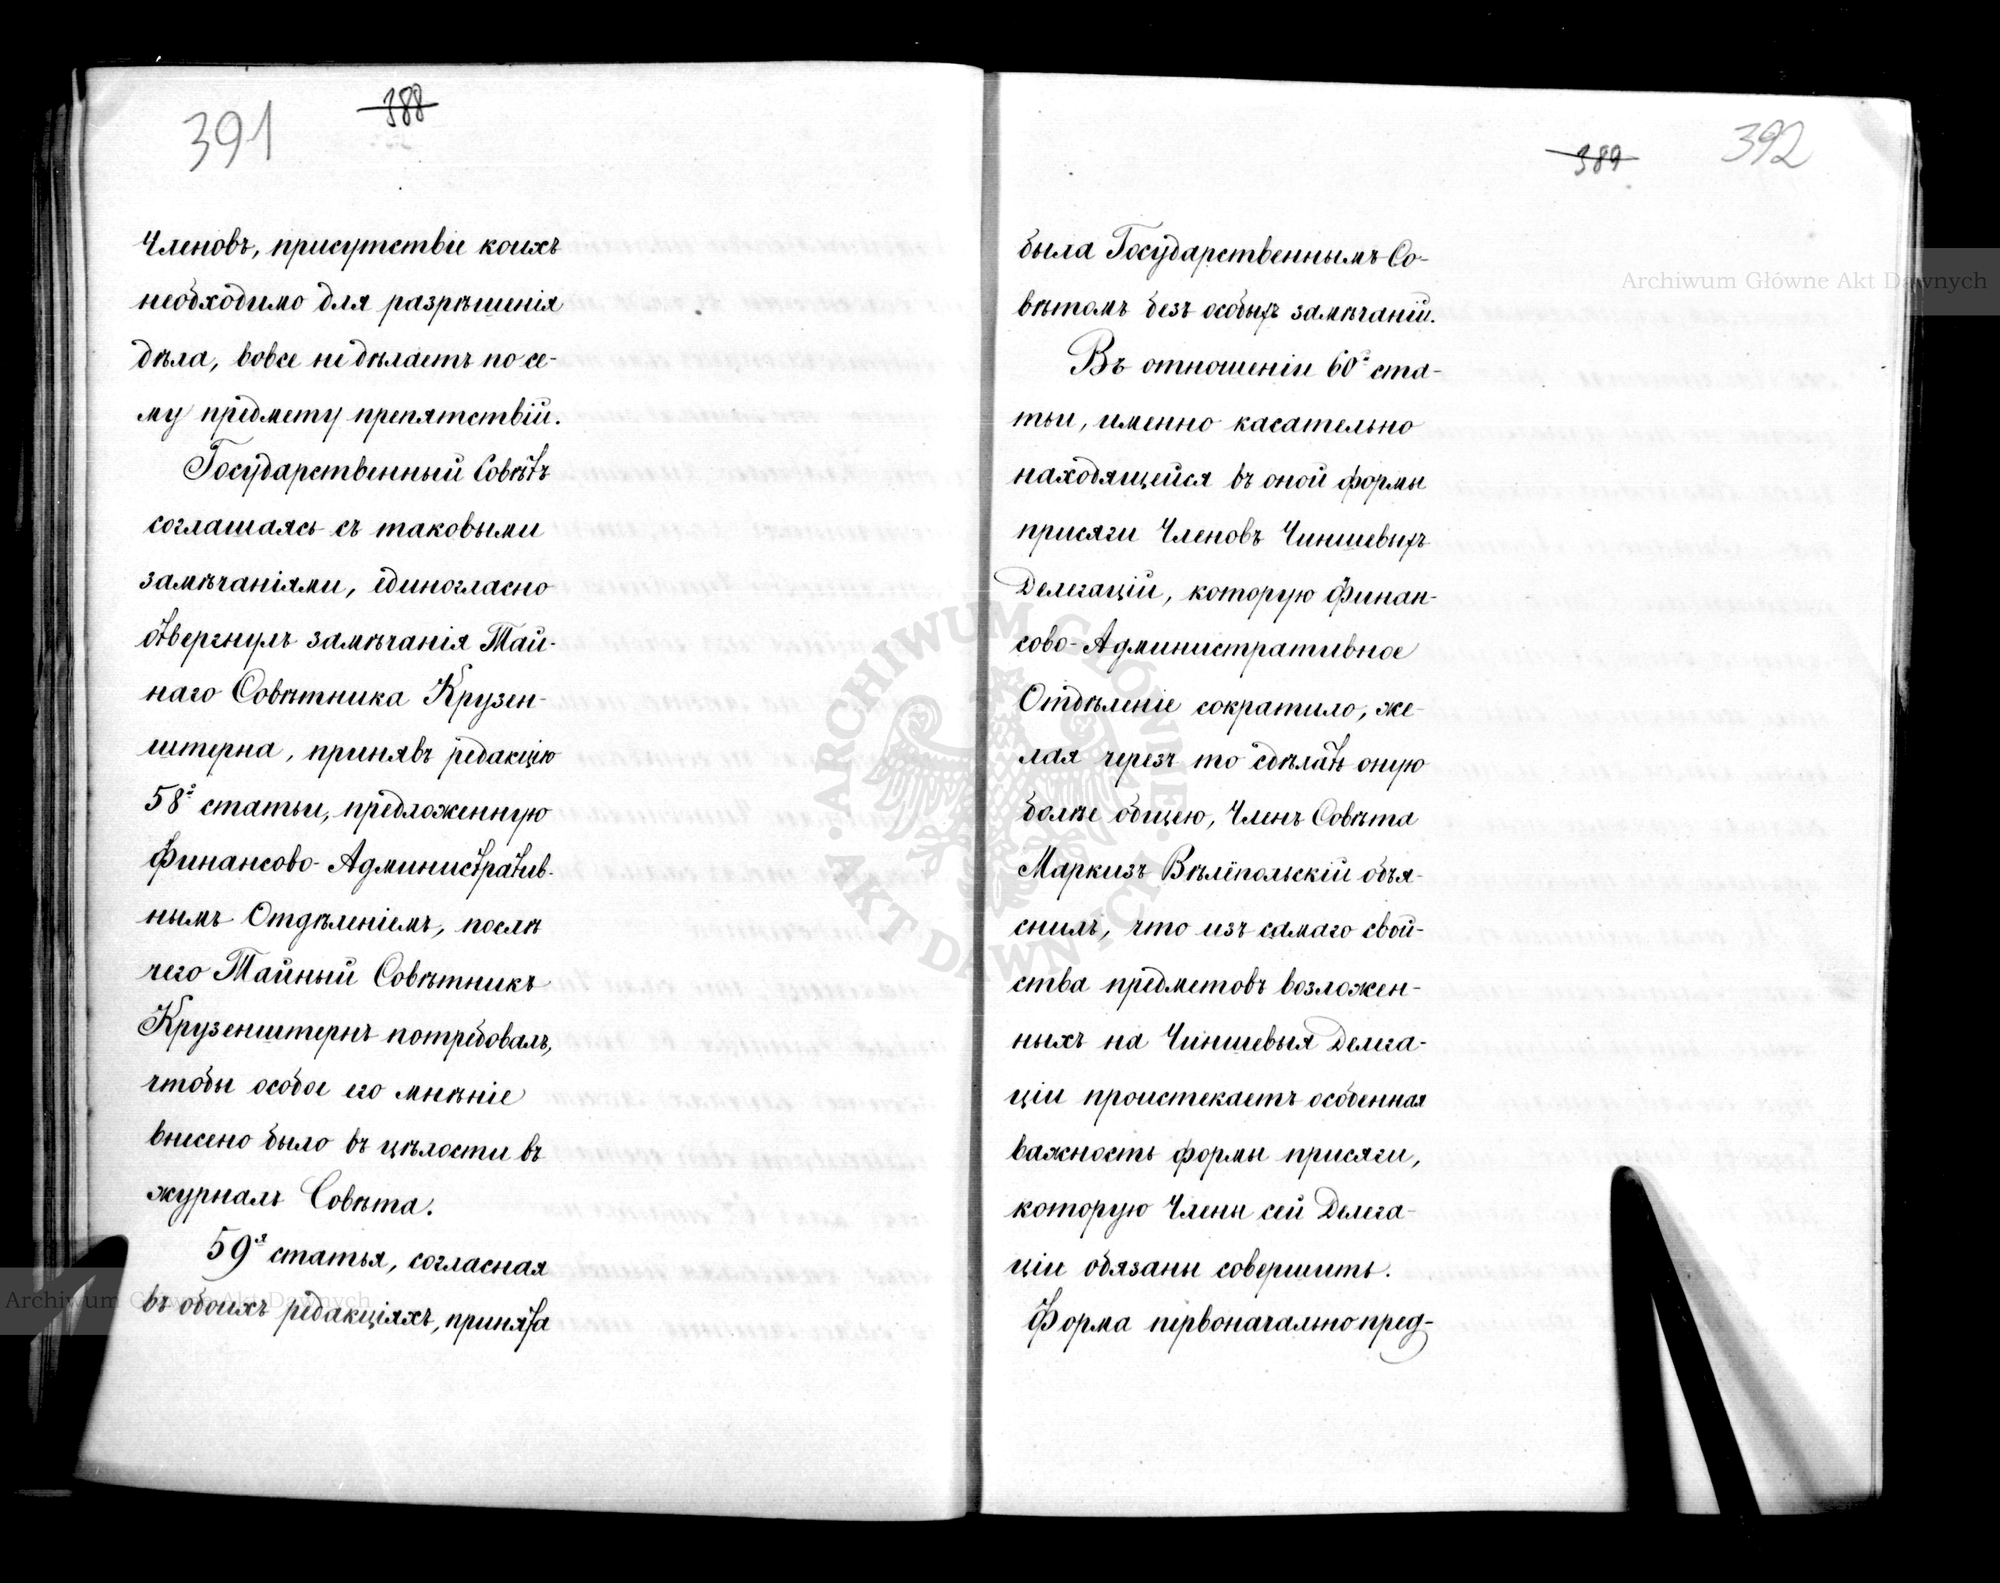 391
388
Членовъ, присутствіе коихъ
необходимо для разрѣшенія
дѣла, вовсе не дѣлаетъ по се-
му предмету препятствій.
Государственный Совѣтъ
соглашаясь съ таковыми
замѣчаніями, единогласно
отвергнулъ замѣчанія Тай-
наго Совѣтника Крузен-
штерна, принявъ редакцію
58й статьи, предложенную
Финансово-Административ-
нымъ Отдѣленіемъ, послѣ
чего Тайный Совѣтникъ
Крузенштернъ потребовалъ,
чтобы особое его мнѣніе
внесено было въ цѣлости въ
журналъ Совѣта.
59я статья, согласная
въ обоихъ редакціяхъ, принята
392
389
была Государственнымъ Со-
вѣтомъ безъ особыхъ замѣчаній.
Въ отношеніи 60й ста-
тьи, именно касательно
находящейся въ оной формы
присяги Членовъ Чиншевыхъ
Делегацій, которую Финан-
сово-Административное
Отдѣленіе сократило, же-
лая черезъ то сдѣлать оную
болѣе общею, Членъ Совѣта
Маркизъ Вѣлёпольскій объя-
снилъ, что изъ самаго свой-
ства предметовъ возложен-
ныхъ на Чиншевыя Делега-
ціи проистекаетъ особенная
важность формы присяги,
которую Члены сей Делега-
ціи обязаны совершить.
Форма первоначально пред-
Archiwum Główne Akt Dawnych
Archiwum Główne Akt Dawnych
ARCHIWUM GŁÓWNE
AKT DAWNYCH